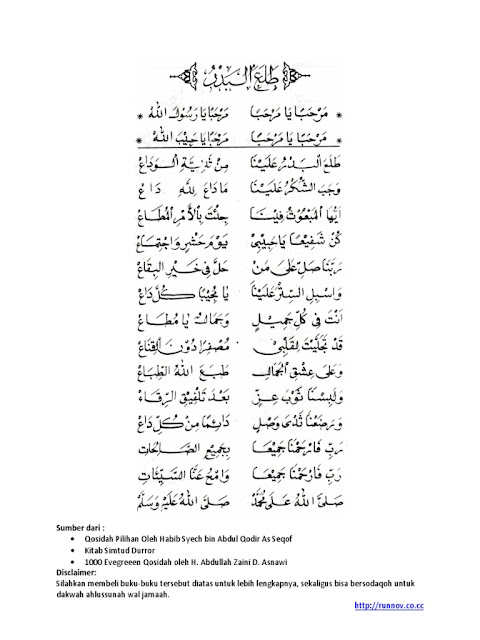 طَلَعَ الْبَدْرُ
* مَرْحَبًا يَا مَرْحَبًا مَرْحَبًا يَا رَسُولَ اللهْ *
* مَرْحَبًا يَا مَرْحَبًا مَرْحَبًا يَا حَبِيْبَ اللهْ *
طَلَعَ الْبَدْرُ عَلَيْنَا مِنْ ثَنِيَّةِ الْوَدَاعْ
وَجَبَ الشُّكْرُ عَلَيْنَا مَا دَعَا لِلّٰهِ دَاعْ
اَيُّهَا الْمَبْعُوْثُ فِيْنَا جِئْتَ بِالْاَمْرِ الْمُطَاعْ
كُنْ شَفِيْعًا يَا حَبِيْبِيْ يَوْمَ حَشْرٍ وَاجْتِمَاعْ
رَبَّنَا صَلِّ عَلَى مَنْ حَلَّ فِي خَيْرِ الْبِقَاعْ
وَاسْبِلِ السِّتْرَ عَلَيْنَا يَا مُجِيْبًا كُلَّ دَاعْ
اَنْتَ فِي كُلِّ جَمِيْلٍ وَجَمَالٍ يَا مُطَاعْ
قَدْ تَجَلَّيْتَ لِقَلْبِيْ مُسْفِرًا دُوْنَ الْقِنَاعْ
وَعَلَى عِشْقِ الْجَمَالِ طَبَعَ اللهُ الطِّبَاعْ
وَلَبِسْنَا ثَوْبَ عِزٍّ بَعْدَ تَلْفِيْقِ الرِّقَاعْ
وَرَضَعْنَا ثَدْيَ وَصْلٍ دَائِمًا مِنْ كُلِّ دَاعْ
رَبِّ فَارْحَمْنَا جَمِيْعًا بِجَمِيْعِ الصَّالِحَاتْ
رَبِّ فَارْحَمْنَا جَمِيْعًا وَامْحُ عَنَّا السَّيِّئَاتْ
صَلَّى اللهُ عَلَى مُحَمَّدْ صَلَّى اللهُ عَلَيْهِ وَسَلَّمْ
Sumber dari :
• Qosidah Pilihan Oleh Habib Syech bin Abdul Qodir As Seqof
• Kitab Simtud Durror
• 1000 Evegreeen Qosidah oleh H. Abdullah Zaini D. Asnawi
Disclaimer:
Silahkan membeli buku-buku tersebut diatas untuk lebih lengkapnya, sekaligus bisa bersodaqoh untuk
dakwah ahlussunah wal jamaah.
http://runnov.co.cc